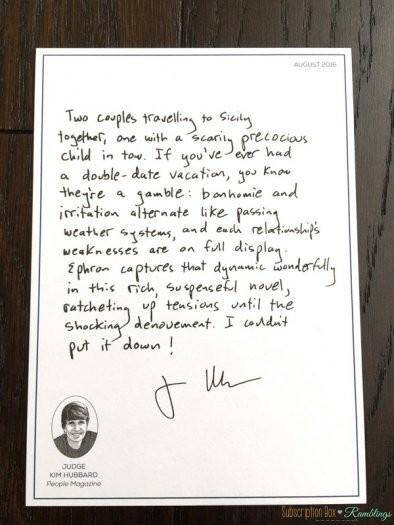 AUGUST 2016
Two couples travelling to Sicily
together, one with a scarily precocious
child in tow. If you've ever had
a double-date vacation, you know
they're a gamble: bonhomie and
irritation alternate like passing
weather systems, and each relationship's
weaknesses are on full display.
Ephron captures that dynamic wonderfully
in this rich, suspenseful novel,
ratcheting up tensions until the
shocking denouement. I couldn't
put it down!
JUDGE
KIM HUBBARD
People Magazine
Subscription Box Ramblings